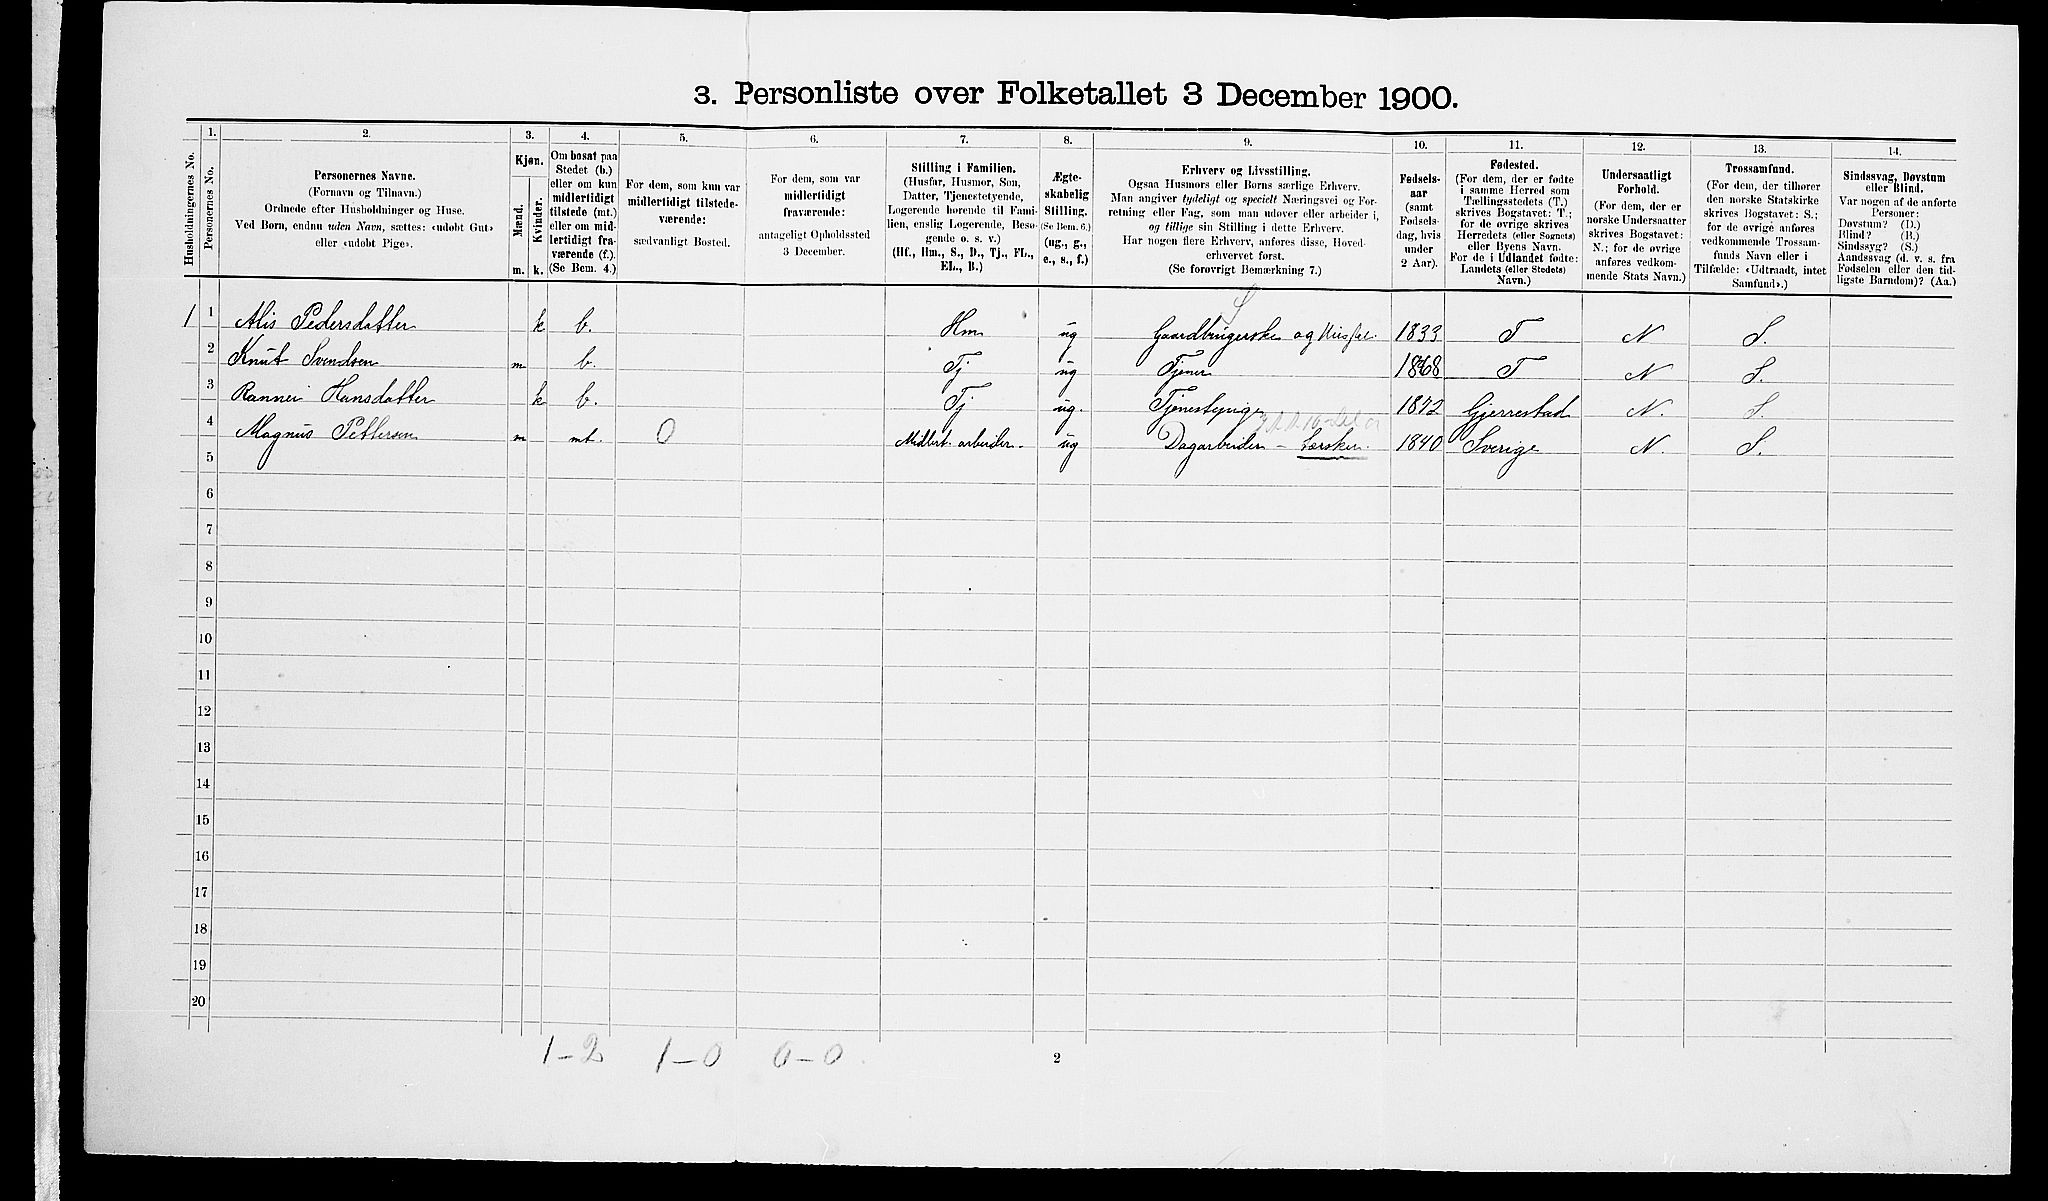 3. Personliste over Folketallet 3 December 1900.
Husholdningernes No.
1.
Personernes No.
2.
Personernes Navne.
(Fornavn og Tilnavn.)
Ordnede efter Husholdninger og Huse.
Ved Børn, endnu uden Navn, sættes: «udøbt Gut»
eller «udøbt Pige».
3.
Kjøn.
Mænd.
Kvinder.
m. k.
4.
Om bosat paa
Stedet (b.)
eller om kun
midlertidigt
tilstede (mt.)
eller om mid-
lertidigt fra-
værende (f.).
(Se Bem. 4.)
5.
For dem, som kun var
midlertidigt tilstede-
værende:
sædvanligt Bosted.
6.
For dem, som var
midlertidigt
fraværende:
antageligt Opholdssted
3 December.
7.
Stilling i Familien.
(Husfar, Husmor, Søn,
Datter, Tjenestetyende,
Logerende hørende til Fami-
lien, enslig Logerende, Besø-
gende o. s. v.)
(Hf., Hm., S., D., Tj., FL.,
EL., B.)
8.
Ægte-
skabelig
Stilling.
(Se Bem. 6.)
(ug., g.,
e., s., f.)
9.
Erhverv og Livsstilling.
Ogsaa Husmors eller Børns særlige Erhverv.
Man angiver tydeligt og specielt Næringsvei og For-
retning eller Fag, som man udøver eller arbeider i,
og tillige sin Stilling i dette Erhverv.
Har nogen flere Erhverv, anføres disse, Hoved-
erhvervet først.
(Se forøvrigt Bemærkning 7.)
10.
Fødsels-
aar
(samt
Fødsels-
dag, hvis
under
2 Aar).
11.
Fødested.
(For dem, der er fødte
i samme Herred som
Tællingsstedets (T.)
skrives Bogstavet: T.;
for de øvrige skrives
Herredets (eller Sognets)
eller Byens Navn.
For de i Udlandet fødte:
Landets (eller Stedets)
Navn.)
12.
Undersaatligt
Forhold.
(For dem, der er
norske Undersaatter
skrives Bogstavet:
N.; for de øvrige
anføres vedkom-
mende Stats Navn.)
13.
Trossamfund.
(For dem, der tilhører
den norske Statskirke
skrives Bogstavet: S.;
for de øvrige anføres
vedkommende Trossam-
funds Navn eller i
Tilfælde: «Udtraadt, intet
Samfund».)
14.
Sindssvag, Døvstum
eller Blind.
Var nogen af de anførte
Personer:
Døvstum? (D.)
Blind? (B.)
Sindssyg? (S.)
Aandssvag (d. v. s. fra
Fødselen eller den tid-
ligste Barndom)? (Aa.)
1 1 Alis Pedersdatter k b. Hm ug Gaardbrugerske og 1833 T N S.
2 Knut Svendsen m b. Tj ug Tjener 1868 T N S.
3 Rannei Hansdatter k b. Tj ug. Tjenestepige 1872 Gjerrestad N. S.
4 Magnus Pettersen m mt. 0 Midlert. arbeider. ug Dagarbeider 1840 Sverige N. S.
5
6
7
8
9
10
11
12
13
14
15
16
17
18
19
20
1-2 1-0 0-0
2